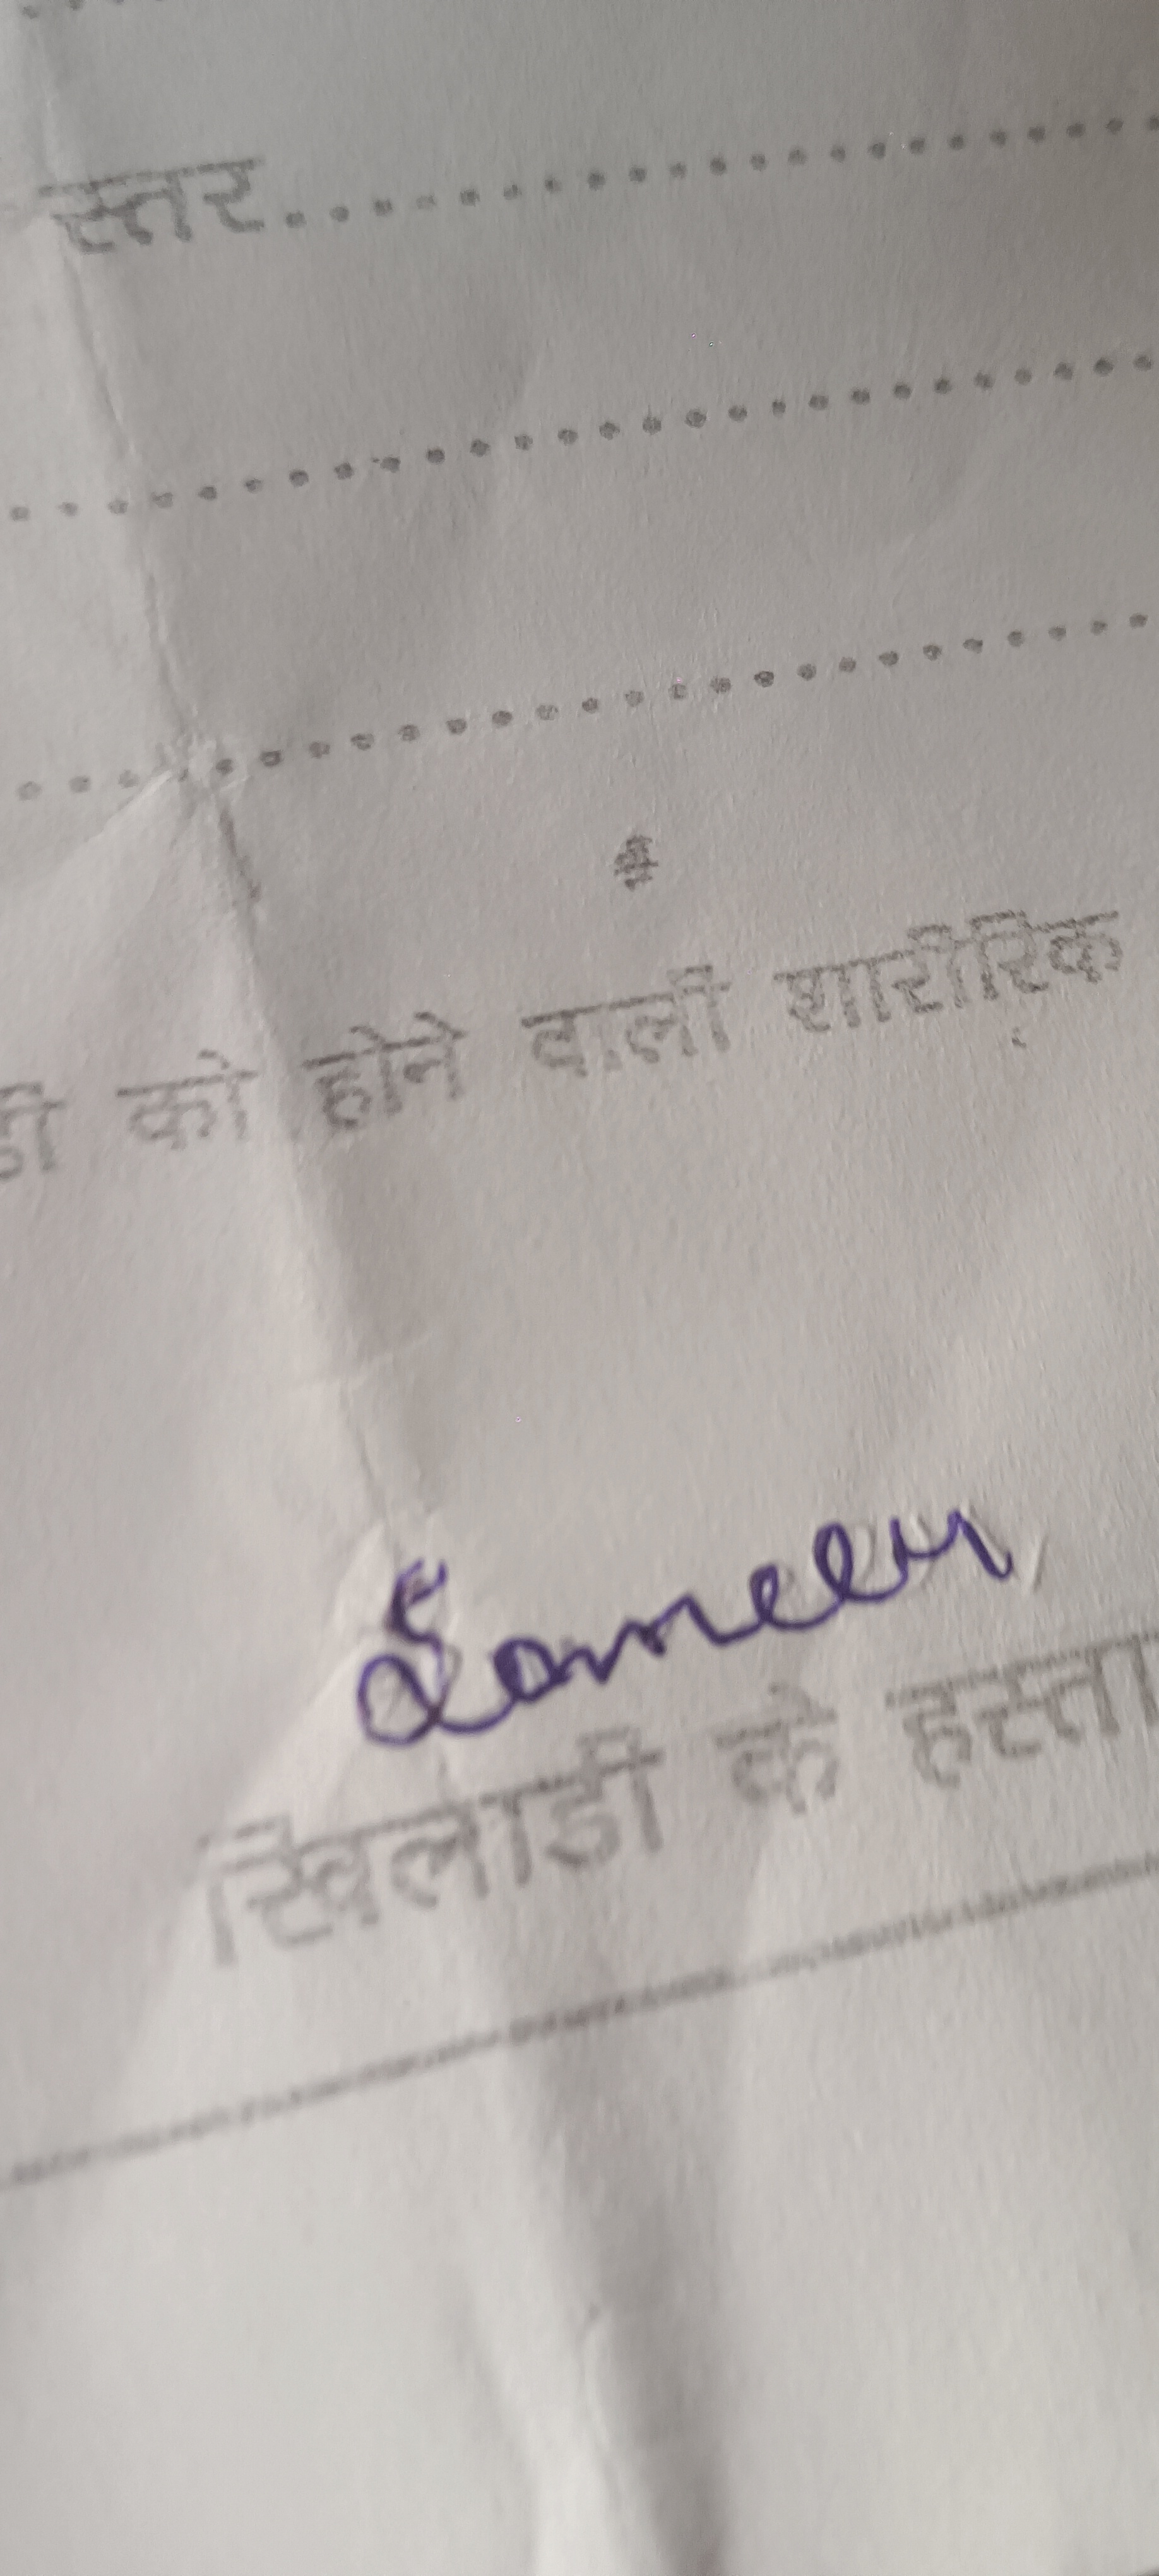 स्तर..............................
मैं
को होने वाली शारीरिक
Sameer
खिलाडी के